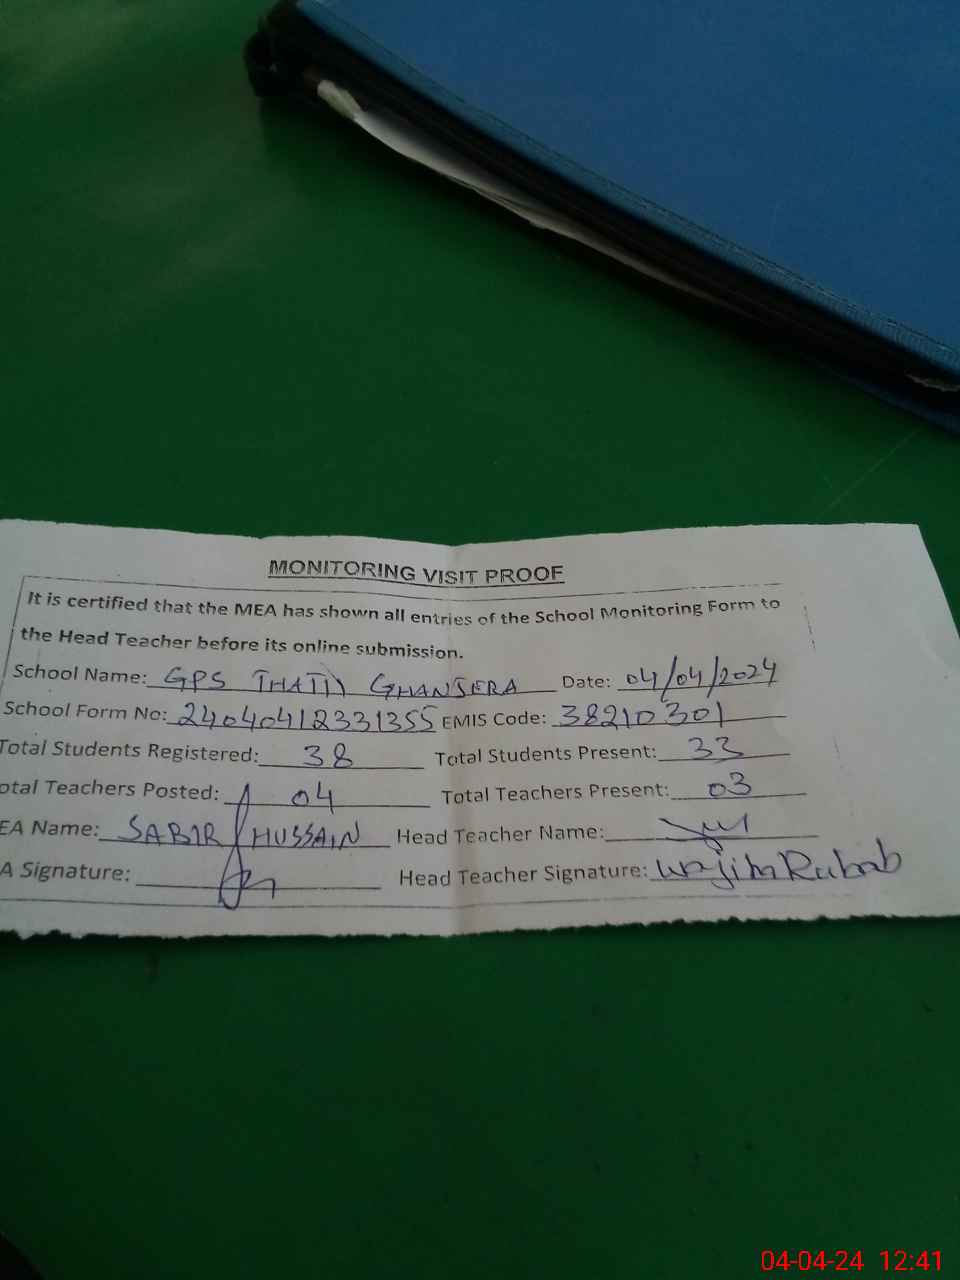 MONITORING VISIT PROOF
It is certified that the MEA has shown all entries of the School Monitoring Form to
the Head Teacher before its online submission.
School Name: GPS THATTI GHANJERA Date: 04/04/2024
School Form No: 24040412331355 EMIS Code: 38210301
Total Students Registered: 38 Total Students Present: 33
otal Teachers Posted: 04 Total Teachers Present: 03
EA Name: SABIR HUSSAIN Head Teacher Name:
A Signature: Head Teacher Signature: Rubab
04-04-24 12:41